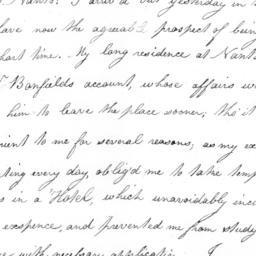 Nants. I arriv'd but yesterday in
have now the agreable prospect of bein
hort time. My long residence at Nant
Banfields account, whose affairs w
him to leave the place sooner; tho' it
ient to me for several reasons, as my ex
ting every day, oblig'd me to take temp
s in a Hotel, which unavoidably inc
expence, and prevented me from study
with necessary application. I